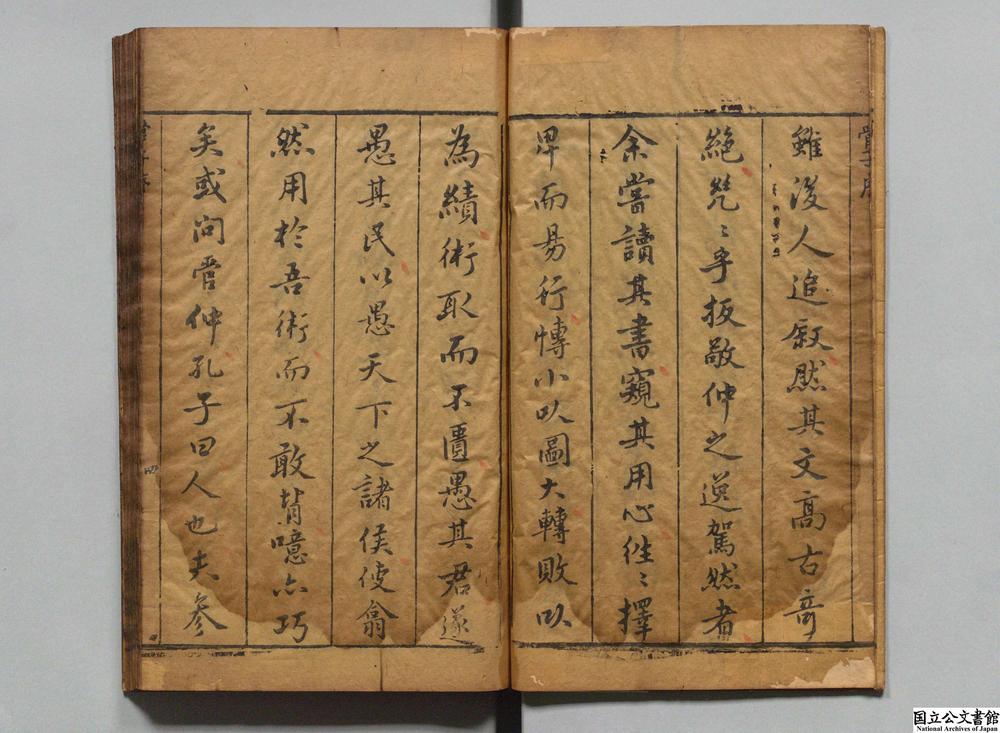 管子序
雖後人追敘然其文高古奇
絕凭〻乎扳敬仲之逆駕然者
余嘗讀其書窺其用心徃〻擇
卑而易行慱小以圖大轉敗以
為績術取而不匱愚其君遂
愚其民以愚天下之諸侯使翕
然用於吾術而不敢背噫亦巧
矣或问管仲孔子曰人也夫参
国立公文書館
National Archives of Japan